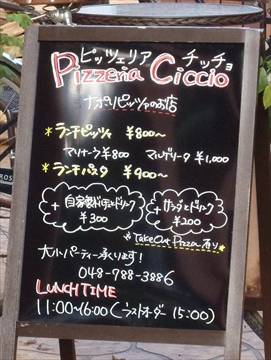 ピッツェリア チッチョ
Pizzeria Ciccio
ナポリピッツァのお店
*ランチピッツァ ¥800〜
マリナーラ ¥800 マルゲリータ ¥1,000
*ランチパスタ ¥900〜
+自家製ドルチェ+ドリンク ¥300
+サラダ+ドリンク ¥200
*TakeOut Pizza 有り*
大小パーティー承ります!
048-788-3886
LUNCH TIME
11:00〜16:00(ラストオーダー 15:00)